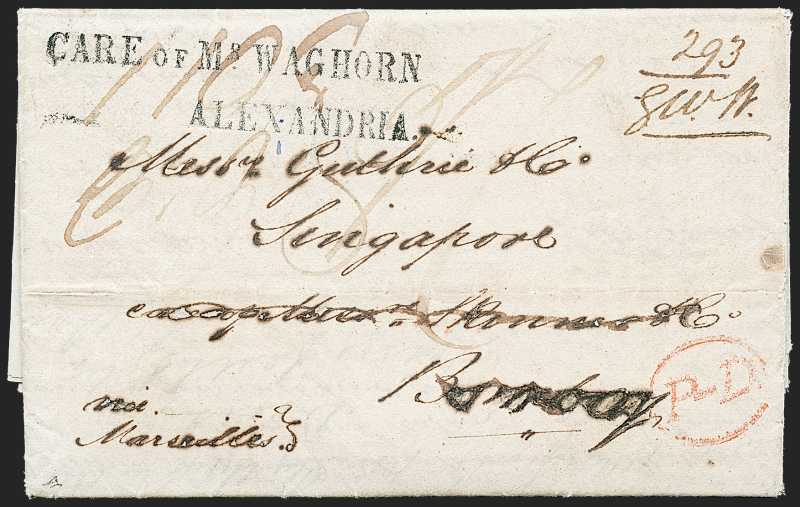 CARE OF MR WAGHORN
ALEXANDRIA.
293
Messrs Guthrie & Co.
Singapore
Skinner & Co.
Bombay
via
Marseilles
P.D